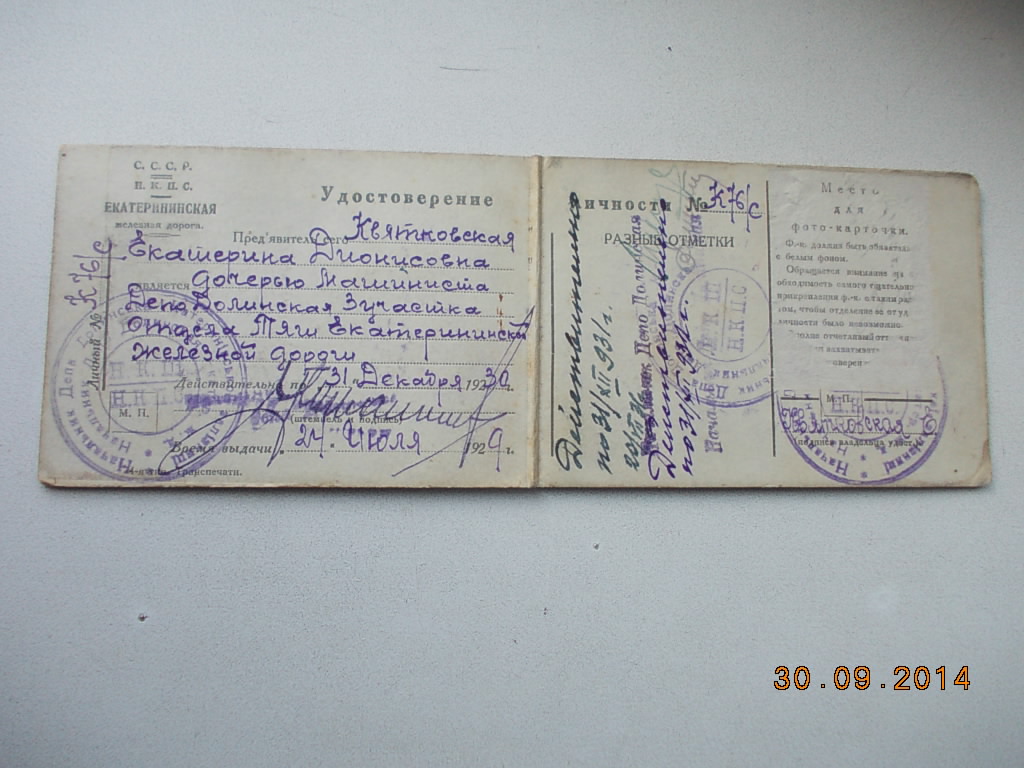 С. С. С. Р.
Н. К. П. С.
ЕКАТЕРИНИНСКАЯ
железная дорога.
Удостоверение
Пред'явительсего Квятковская
Екатерина Дионисовна
является дочерью Машиниста
Депо Долинская 3 участка
Отдела Тяги Екатерининской
железной дороги
Личный № К 76/с
Действительно по 31 Декабря 1930 г.
М. П.
(штемпель и подпись)
Время выдачи 27 Июля 1929 г.
Транспечати.
личности № К76/с
РАЗНЫЕ ОТМЕТКИ
Действительно
по 31/XII 1931 г.
Депо Долинская
Действительно
по 31/XII 193
Н.К.П.С.
Место
для
фото-карточки.
Ф-к. должна быть обязательно
с белым фоном.
Обращается внимание на
обходимость самого тщательно
прикрепления ф.-к. с таким рас
том, чтобы отделение ее от уд
личности было невозможно.
М. П.
Квятковская
(подпись владельца удост.)
30.09.2014